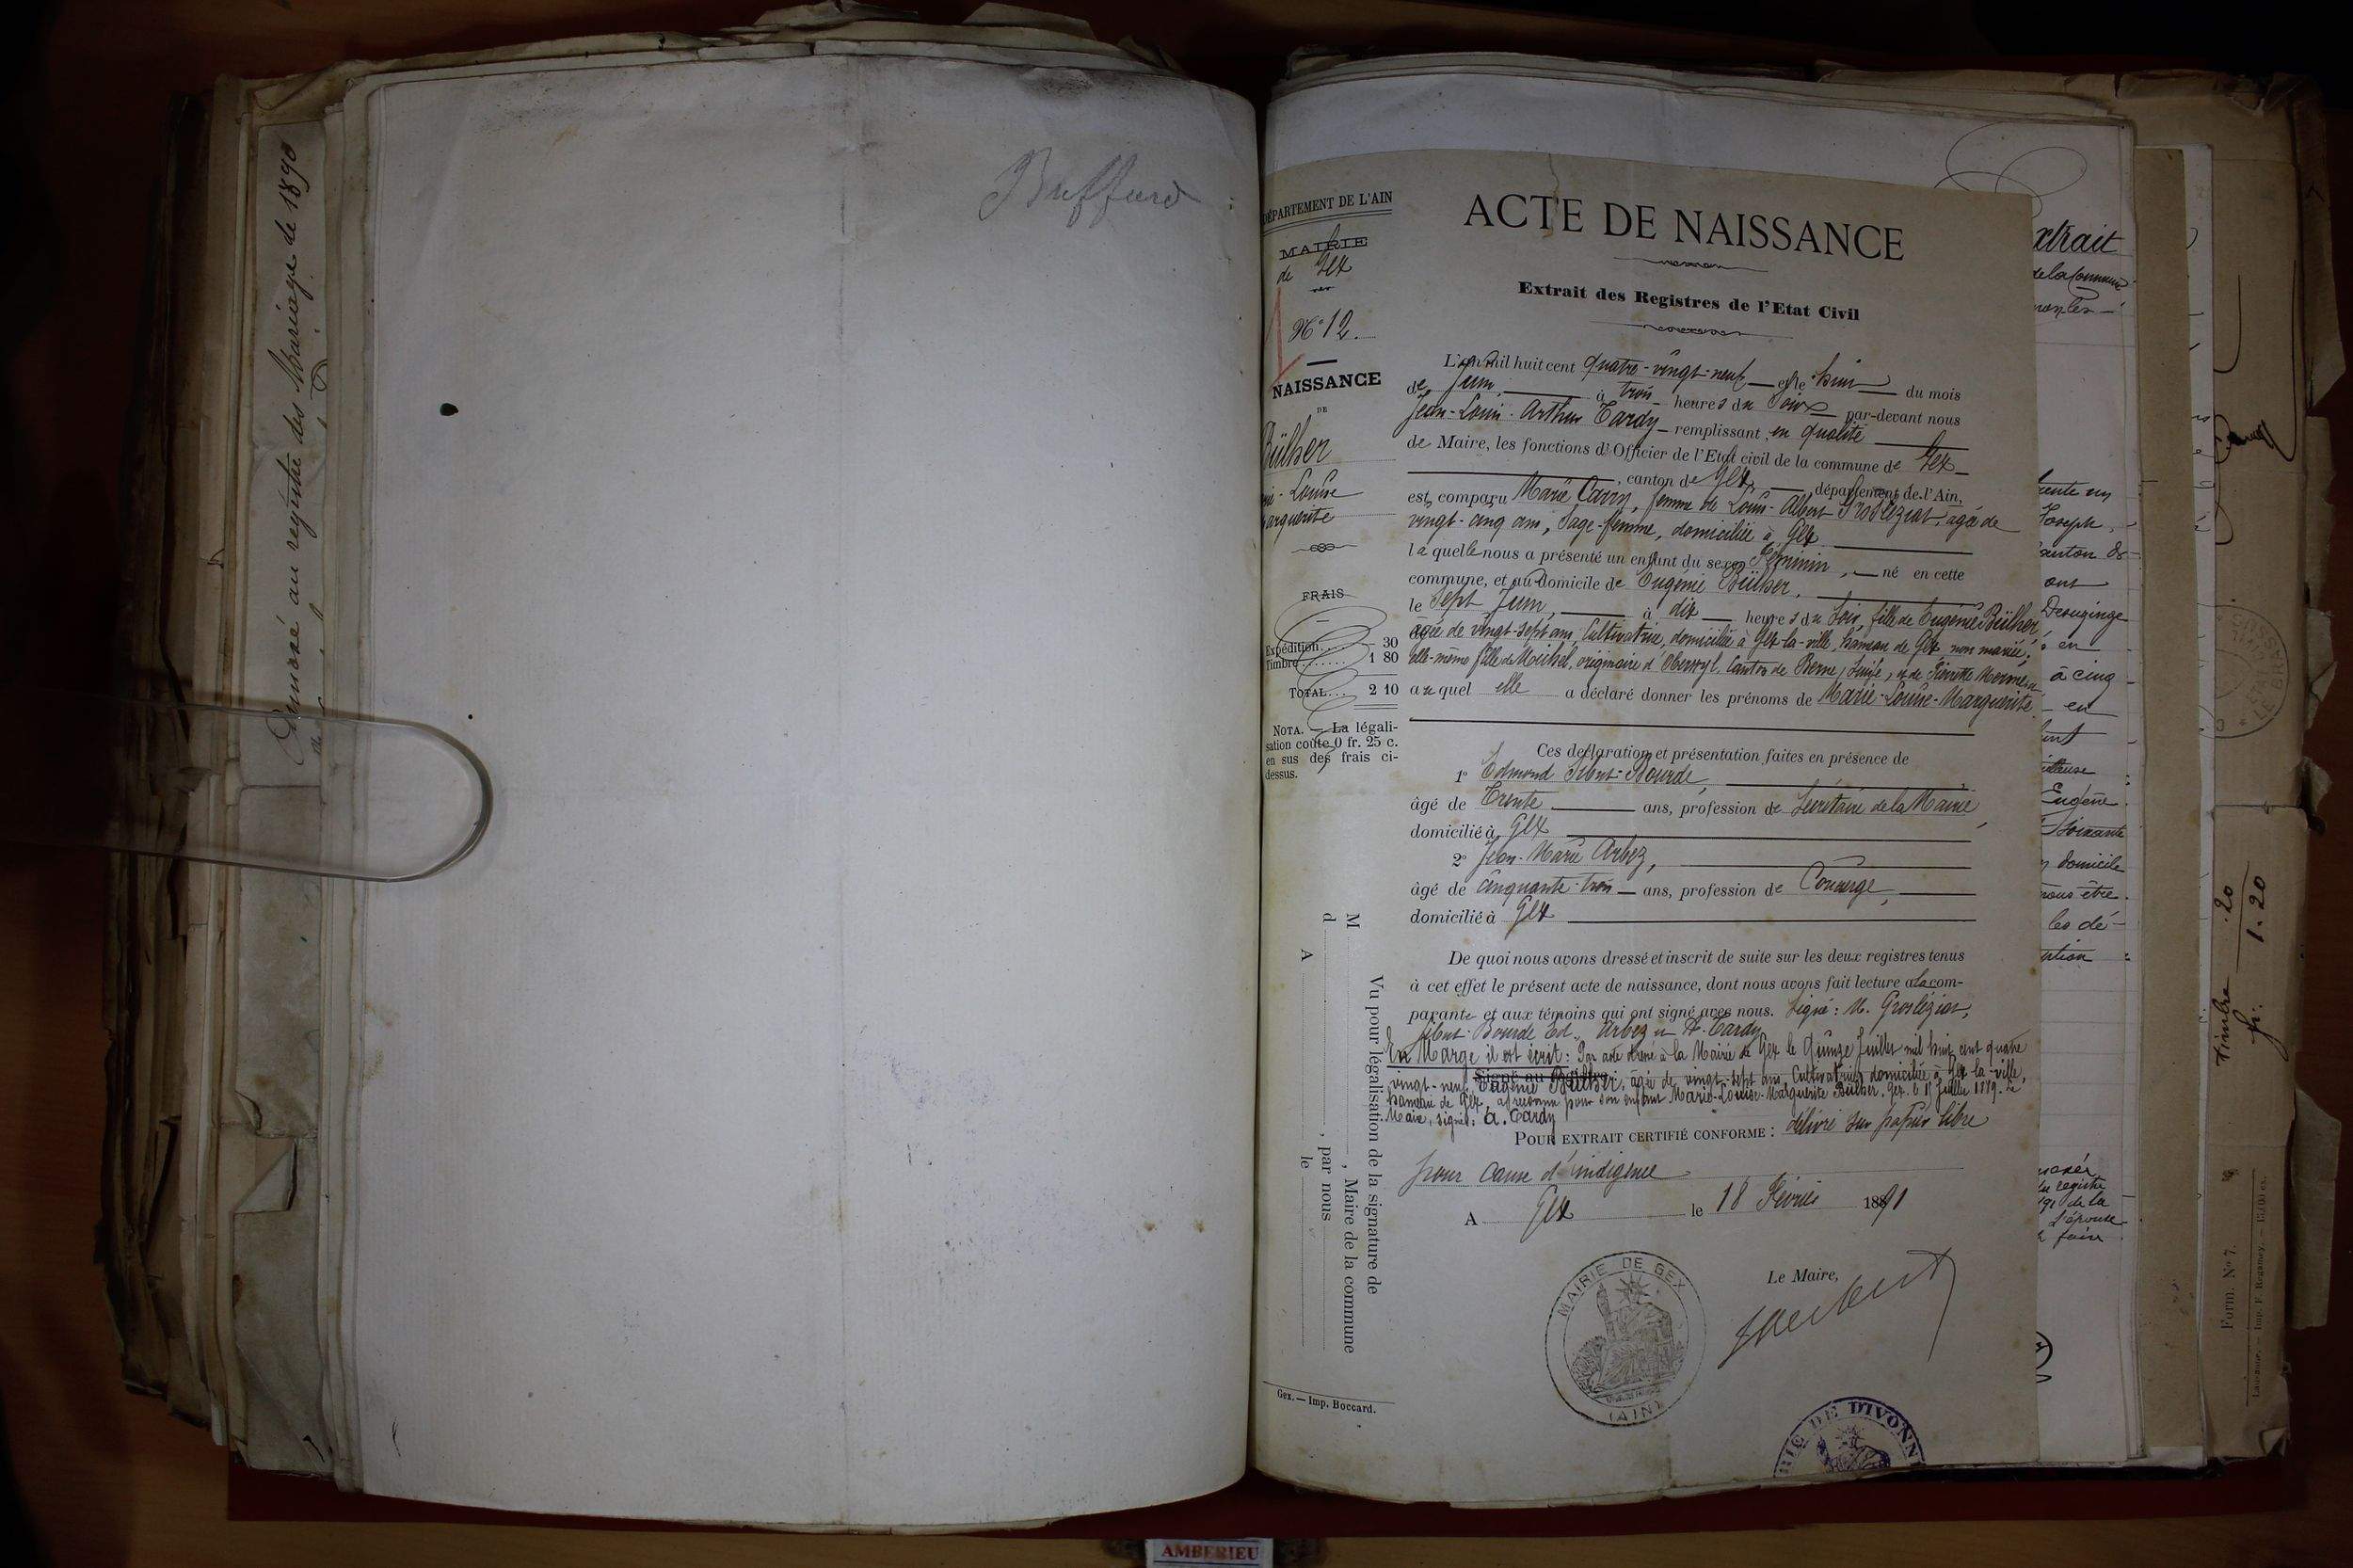 Annexé au registre des Mariage de 1890
Buffard
DÉPARTEMENT DE L'AIN
MAIRIE
de Gex
N° 12
NAISSANCE
DE
Bülher
Louise
Marguerite
FRAIS
Expédition.... 30
Timbre....... 1 80
TOTAL... 2 10
NOTA. — La légali-
sation coûte 0 fr. 25 c.
en sus des frais ci-
dessus.
Vu pour légalisation de la signature de
M , Maire de la commune
d , par nous
A le
Gex. — Imp. Boccard.
ACTE DE NAISSANCE
Extrait des Registres de l'Etat Civil
L'an mil huit cent quatre-vingt-neuf et le huit du mois
de Juin à trois heures du Soir par-devant nous
Jean-Louis-Arthur Tardy remplissant en qualité
de Maire, les fonctions d'Officier de l'Etat civil de la commune de Gex
, canton de Gex, département de l'Ain,
est comparu Marie Carry, femme de Louis-Albert Grosléziat, agée de
vingt-cinq ans, Sage-femme, domiciliée à Gex
laquelle nous a présenté un enfant du sexe Féminin, né en cette
commune, et au Domicile de Eugénie Bülher,
le Sept Juin, à dix heures du Soir, fille de Eugénie Bülher,
âgée de vingt-sept ans, Cultivatrice, domiciliée à Gex-la-ville, hameau de Gex non mariée,
elle-même fille de Michel, originaire d'Oberwyl, Canton de Berne, Suisse, et de Pierrette
auquel elle a déclaré donner les prénoms de Marie-Louise-Marguerite
Ces déclaration et présentation faites en présence de
1° Edmond
âgé de Trente ans, profession de Secrétaire de la Mairie,
domicilié à Gex
2° Jean-Marie Arbez,
âgé de Cinquante-trois ans, profession de Concierge,
domicilié à Gex
De quoi nous avons dressé et inscrit de suite sur les deux registres tenus
à cet effet le présent acte de naissance, dont nous avons fait lecture à la com-
parante et aux témoins qui ont signé avec nous. Signé: M. Grosléziat,
Ed., Arbez et A. Tardy
En Marge il est écrit: Par acte dressé à la Mairie de Gex le Quinze Juillet mil huit cent quatre
vingt-neuf, Eugénie Bülher, âgée de vingt-sept ans, Cultivatrice, domiciliée à Gex-la-ville,
hameau de Gex, a reconnu pour son enfant Marie-Louise-Marguerite Bülher. Gex, le 15 Juillet 1889. Le
Maire, signé: A. Tardy
POUR EXTRAIT CERTIFIÉ CONFORME: délivré sur papier libre
pour cause d'indigence
A Gex le 18 Février 1891
Le Maire,
MAIRIE DE GEX
(AIN)
RIE DE DIVONN
xtrait
de la Commune
trente un
Joseph
canton de
ont
en
à cinq
en
Eugène
Soixante
domicile
nous être
les dé-
registre
de la
l'épouse
Timbre .20
fr. 1.20
Form. N° 7.
AMBERIEU